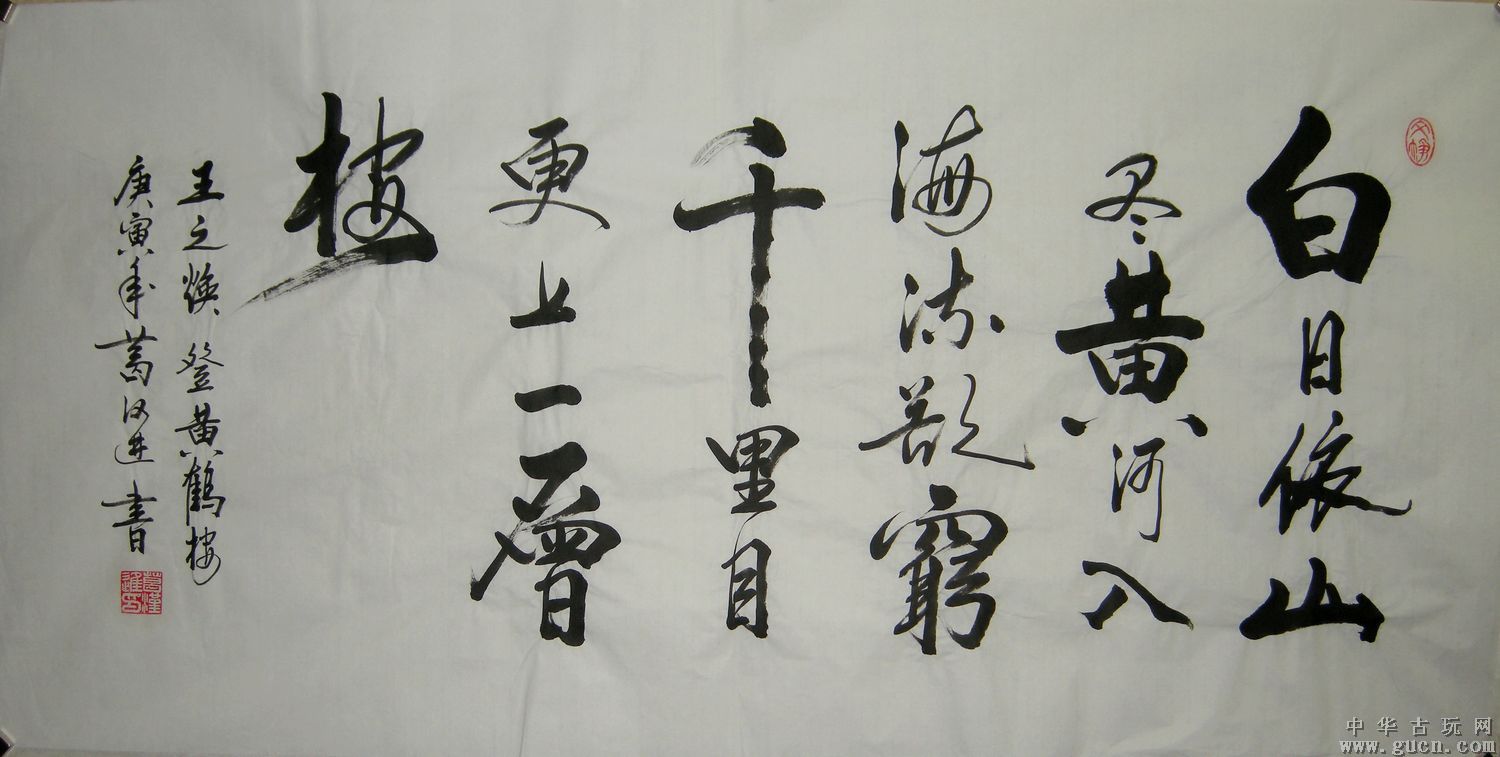 白日依山
尽黄河入
海流欲窮
千里目
更上一層
楼
王之焕登黄鶴楼
庚寅年葛汉进書
葛漢進印
中华古玩网
www.gucn.com